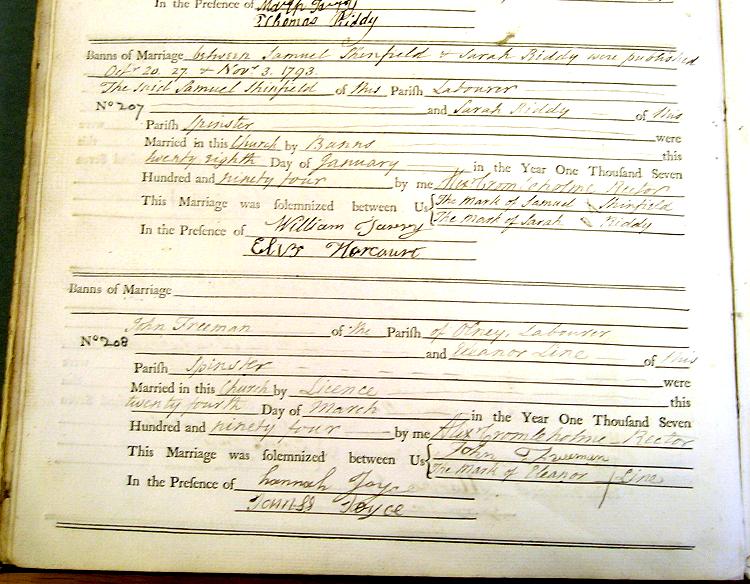 In the Presence of
Thomas Riddy
Banns of Marriage between Samuel Shinfield & Sarah Riddy were published
Octr. 20. 27. & Novr. 3. 1793.
The said Samuel Shinfield of this Parish Labourer
No 207 and Sarah Riddy of this
Parish Spinster were
Married in this Church by Banns this
twenty eighth Day of January in the Year One Thousand Seven
Hundred and ninety four by me Alexr Cromleholme Rector
This Marriage was solemnized between Us The Mark of Samuel Shinfield
The Mark of Sarah Riddy
In the Presence of William
Elizr Harcourt
Banns of Marriage
John Freeman of the Parish of Olney, Labourer
No 208 and Eleanor Line of this
Parish Spinster were
Married in this Church by Licence this
twenty fourth Day of March in the Year One Thousand Seven
Hundred and ninety four by me Alexr Cromleholme Rector
This Marriage was solemnized between Us John Freeman
The Mark of Eleanor Line
In the Presence of hannah Joy
Joyce